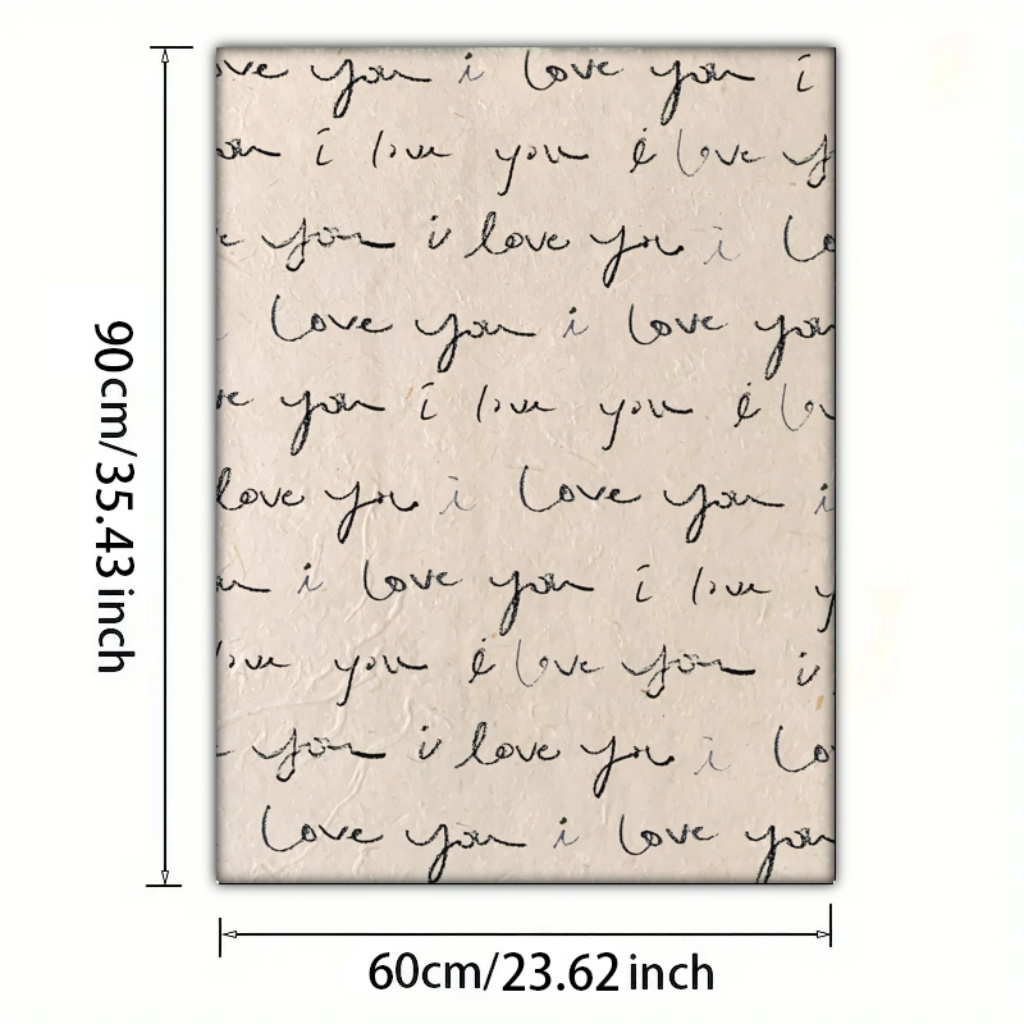 ove you i love you i
ou i love you i love y
e you i love you i lo
love you i love you
ve you i love you i lov
love you i love you i
ou i love you i love y
love you i love you i
you i love you i lo
love you i love you
90cm/35.43 inch
60cm/23.62 inch